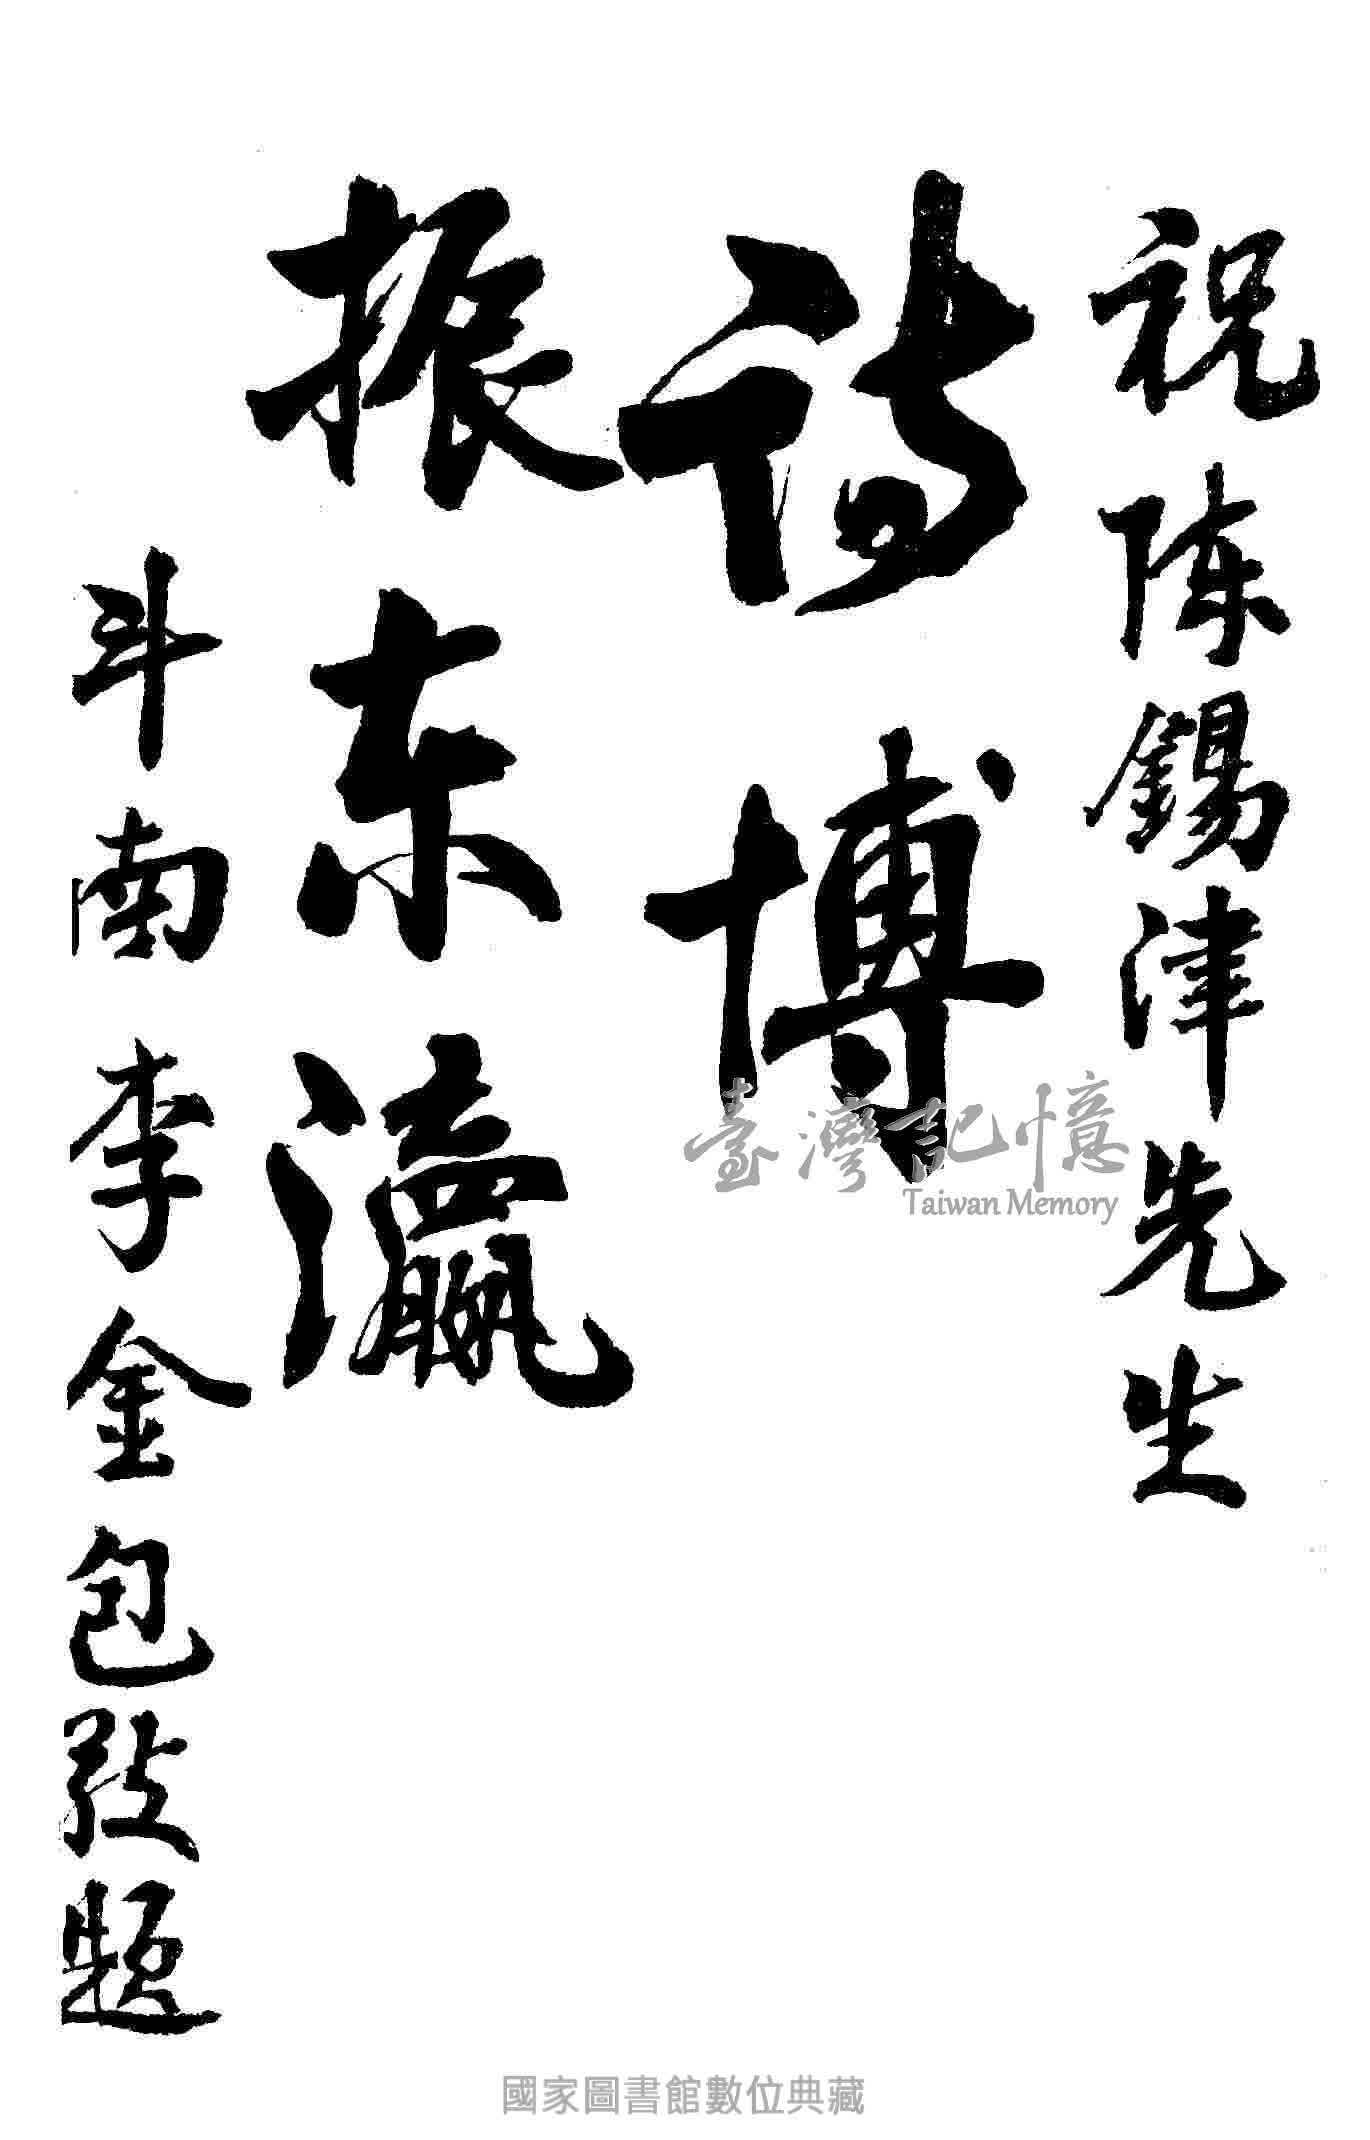 祝陳錫津先生
詩博
振東瀛
斗南李金包敬題
臺灣記憶
Taiwan Memory
國家圖書館數位典藏